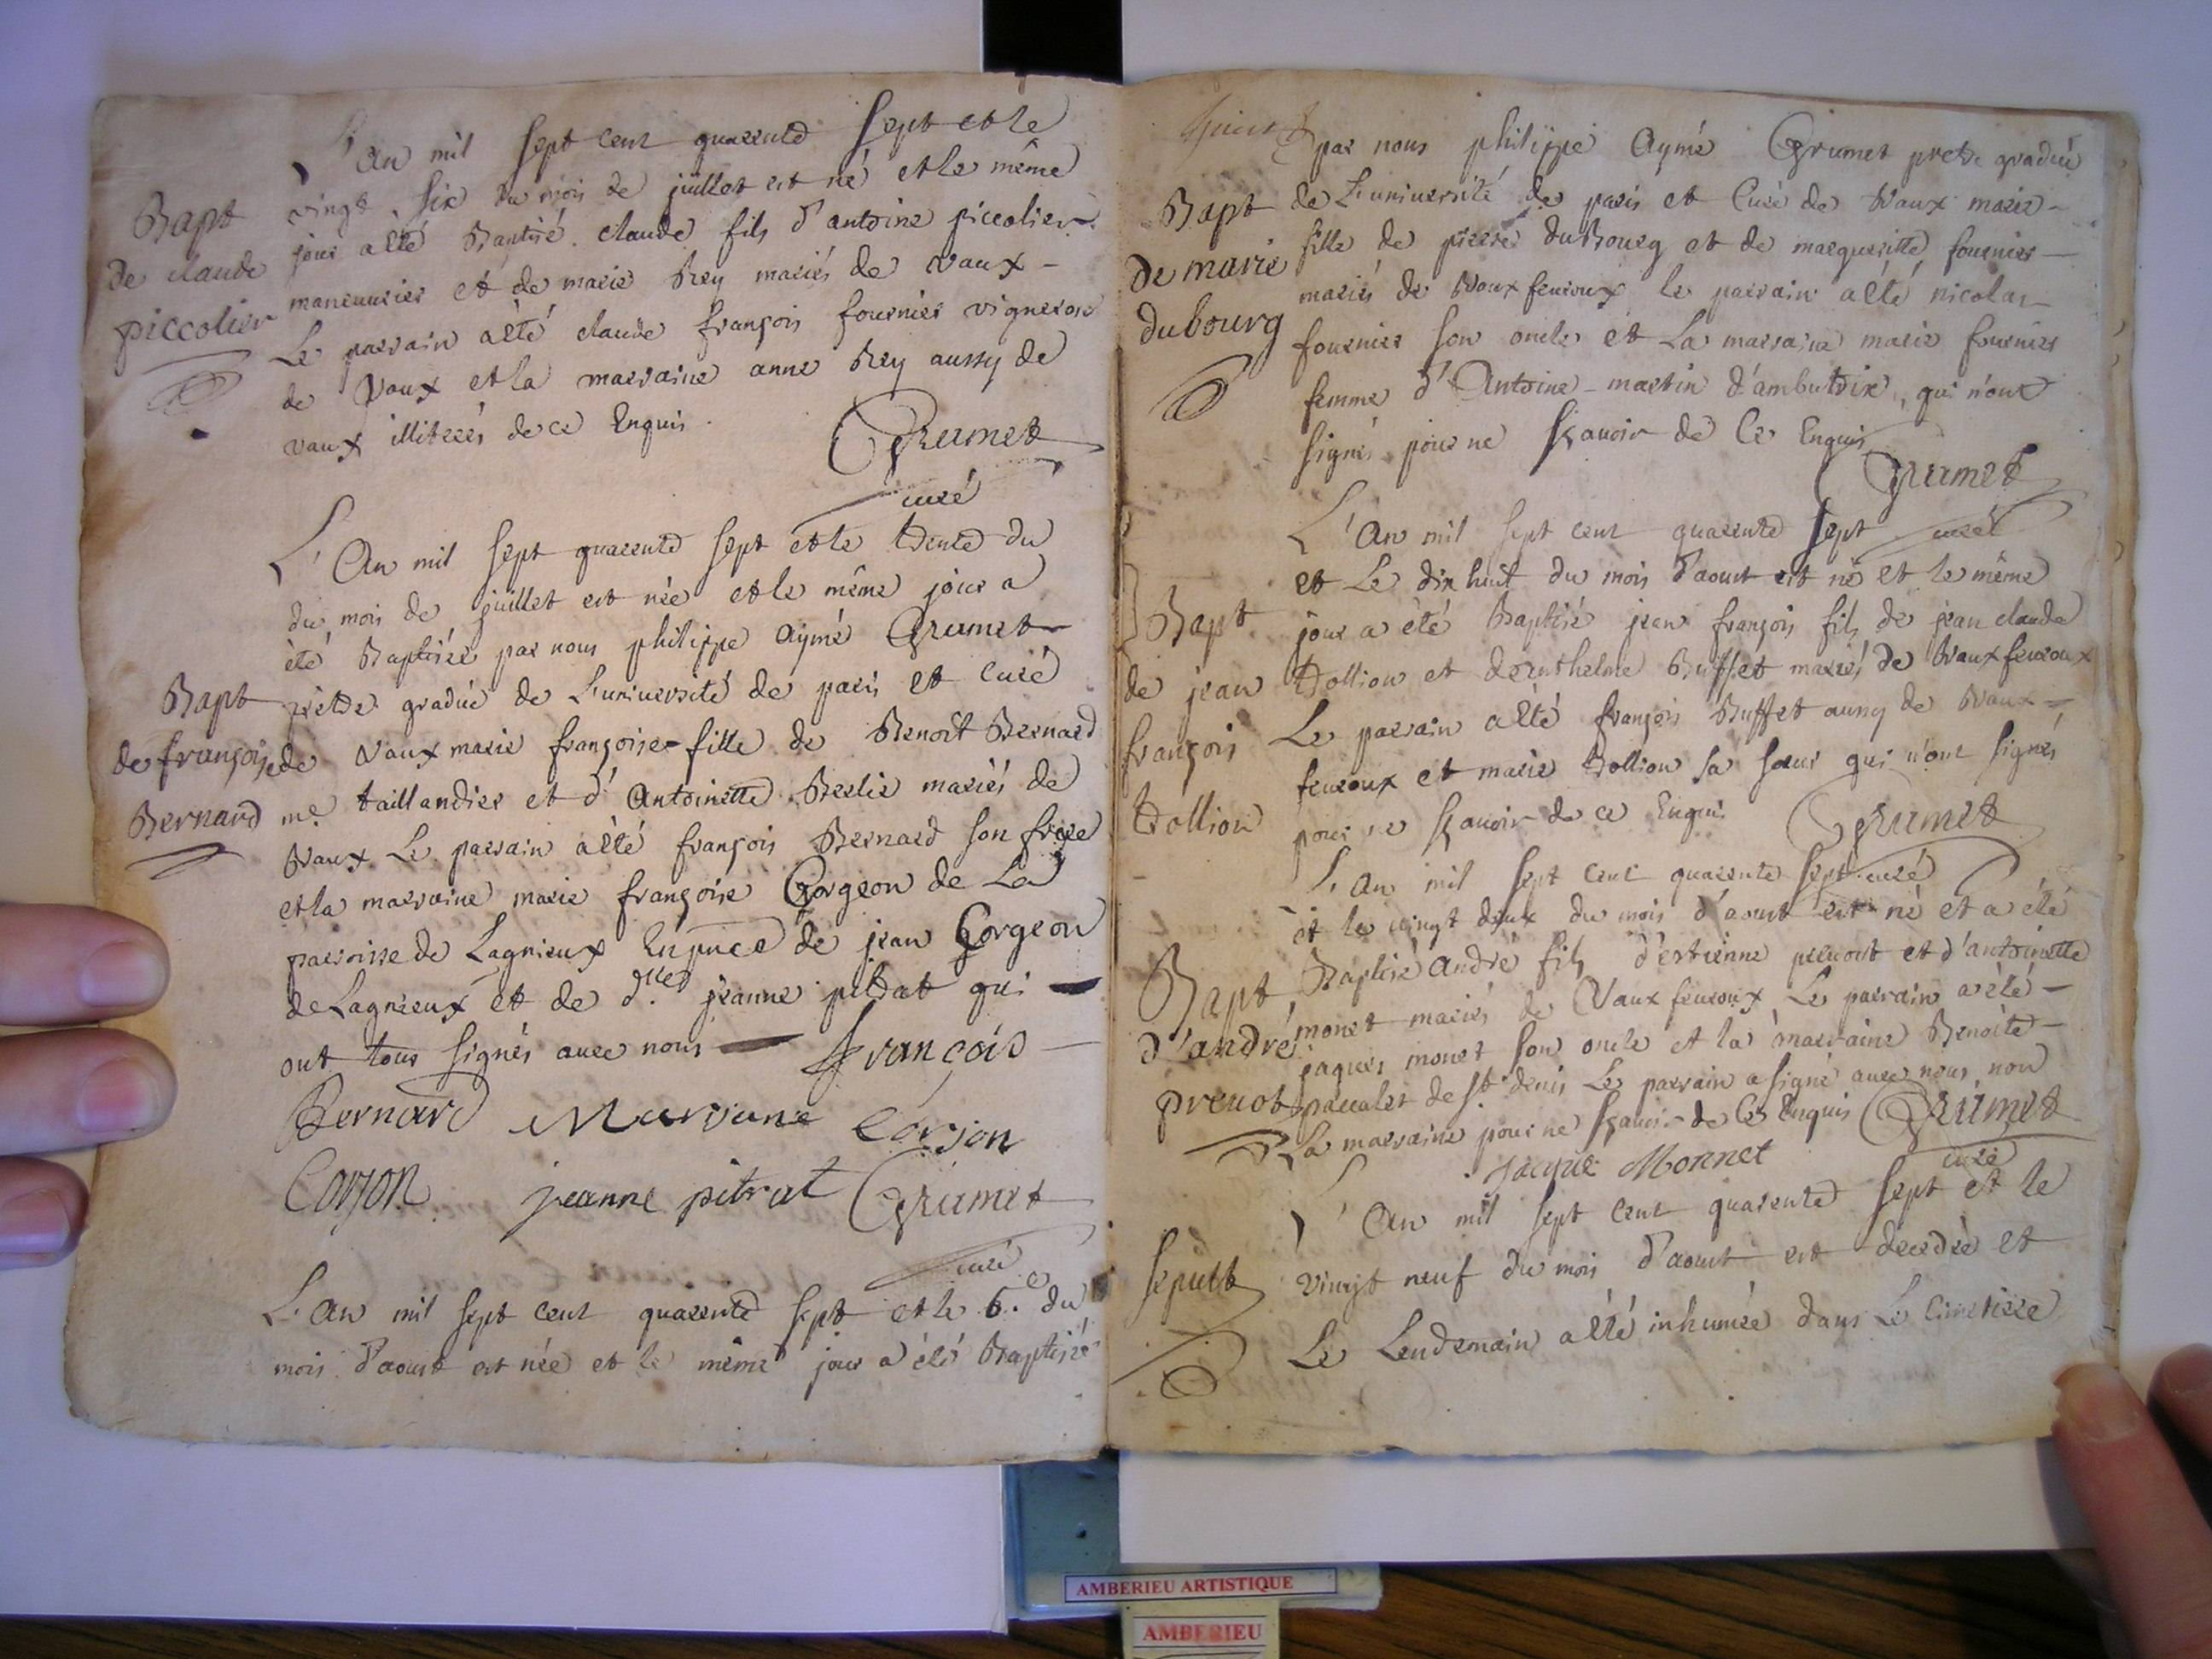 L'An mil sept cent quarente sept et le
vingt six du mois de juillet est né et le même
Bapt
de claude
piccolier
jour a été Baptisé claude fils d'antoine piccolier
maneuurier et de marie Rey mariés de vaux -
Le parrain a été claude françois fournier vigneron
de Vaux et la marraine anne Rey aussy de
vaux illiterés de ce Enquis.
Grumet
curé
L'An mil sept quarente sept et le trente du
du mois de juillet est née et le même jour a
été Baptisée par nous philippe aymé Grumet
Bapt
de françoise
Bernard
prêtre gradué de L'université de paris et curé
de Vaux marie françoise fille de Benoît Bernard
me taillandier et d'Antoinette Berlie mariés de
Vaux Le parrain a été françois Bernard son frere
et la marraine marie françoise Gorgeon de La
parroisse de Lagnieux En puce de jean Gorgeon
de Lagneux et de dlle jeanne pitrat qui
ont tous signés auec nous françois
Bernard Marianne Corjon
Corjon jeanne pitrat Grumet
curé
L'an mil sept cent quarente sept et le 6.e du
mois d'aoust est née et le même jour a été Baptisée
par nous philippe Aymé Grumet pretre gradué
Bapt
de marie
dubourg
de L'université de paris et Curé de Vaux marie -
fille de pierre duBourg et de margueritte fournier -
mariés de Vaux feuroux le parrain a été nicolas -
fournier son oncle et La marraine marie fournier
femme d'Antoine - martin d'ambutrix, qui n'ont
signés pour ne sçauoir de Ce Enquis
Grumet
curé
L'An mil sept cent quarente sept
et Le dix huit du mois d'aoust est né et le même
Bapt
de jean
françois
trollion
jour a été Baptisé jean françois fils de jean claude
trollion et d'enthelme Buffet mariés de Vaux feuroux
Le parrain a été françois Buffet aussy de Vaux =
feuroux et marie trollion sa sœur qui n'ont signés
pour ne sçauoir de ce Enquis Grumet
curé
L'an mil sept cent quarente sept
et le vingt deux du mois d'aoust est né et a été
Bapt
d'andré
preuot
Baptisé andré fils d'estienne preuost et d'antoinette
monet mariés de Vaux feuroux Le parrain a été -
jaques monet son oncle et la marraine Benoite -
paccalet de st denis Le parrain a signé auec nous non
La marraine pour ne sçauoir de Ce Enquis Grumet
curé
jacque Monnet
L'An mil sept cent quarente sept et le
Sepult
vingt neuf du mois d'aoust est decedée et
Le Lendemain a été inhumée dans Le Cimetiere
AMBERIEU ARTISTIQUE
AMBERIEU